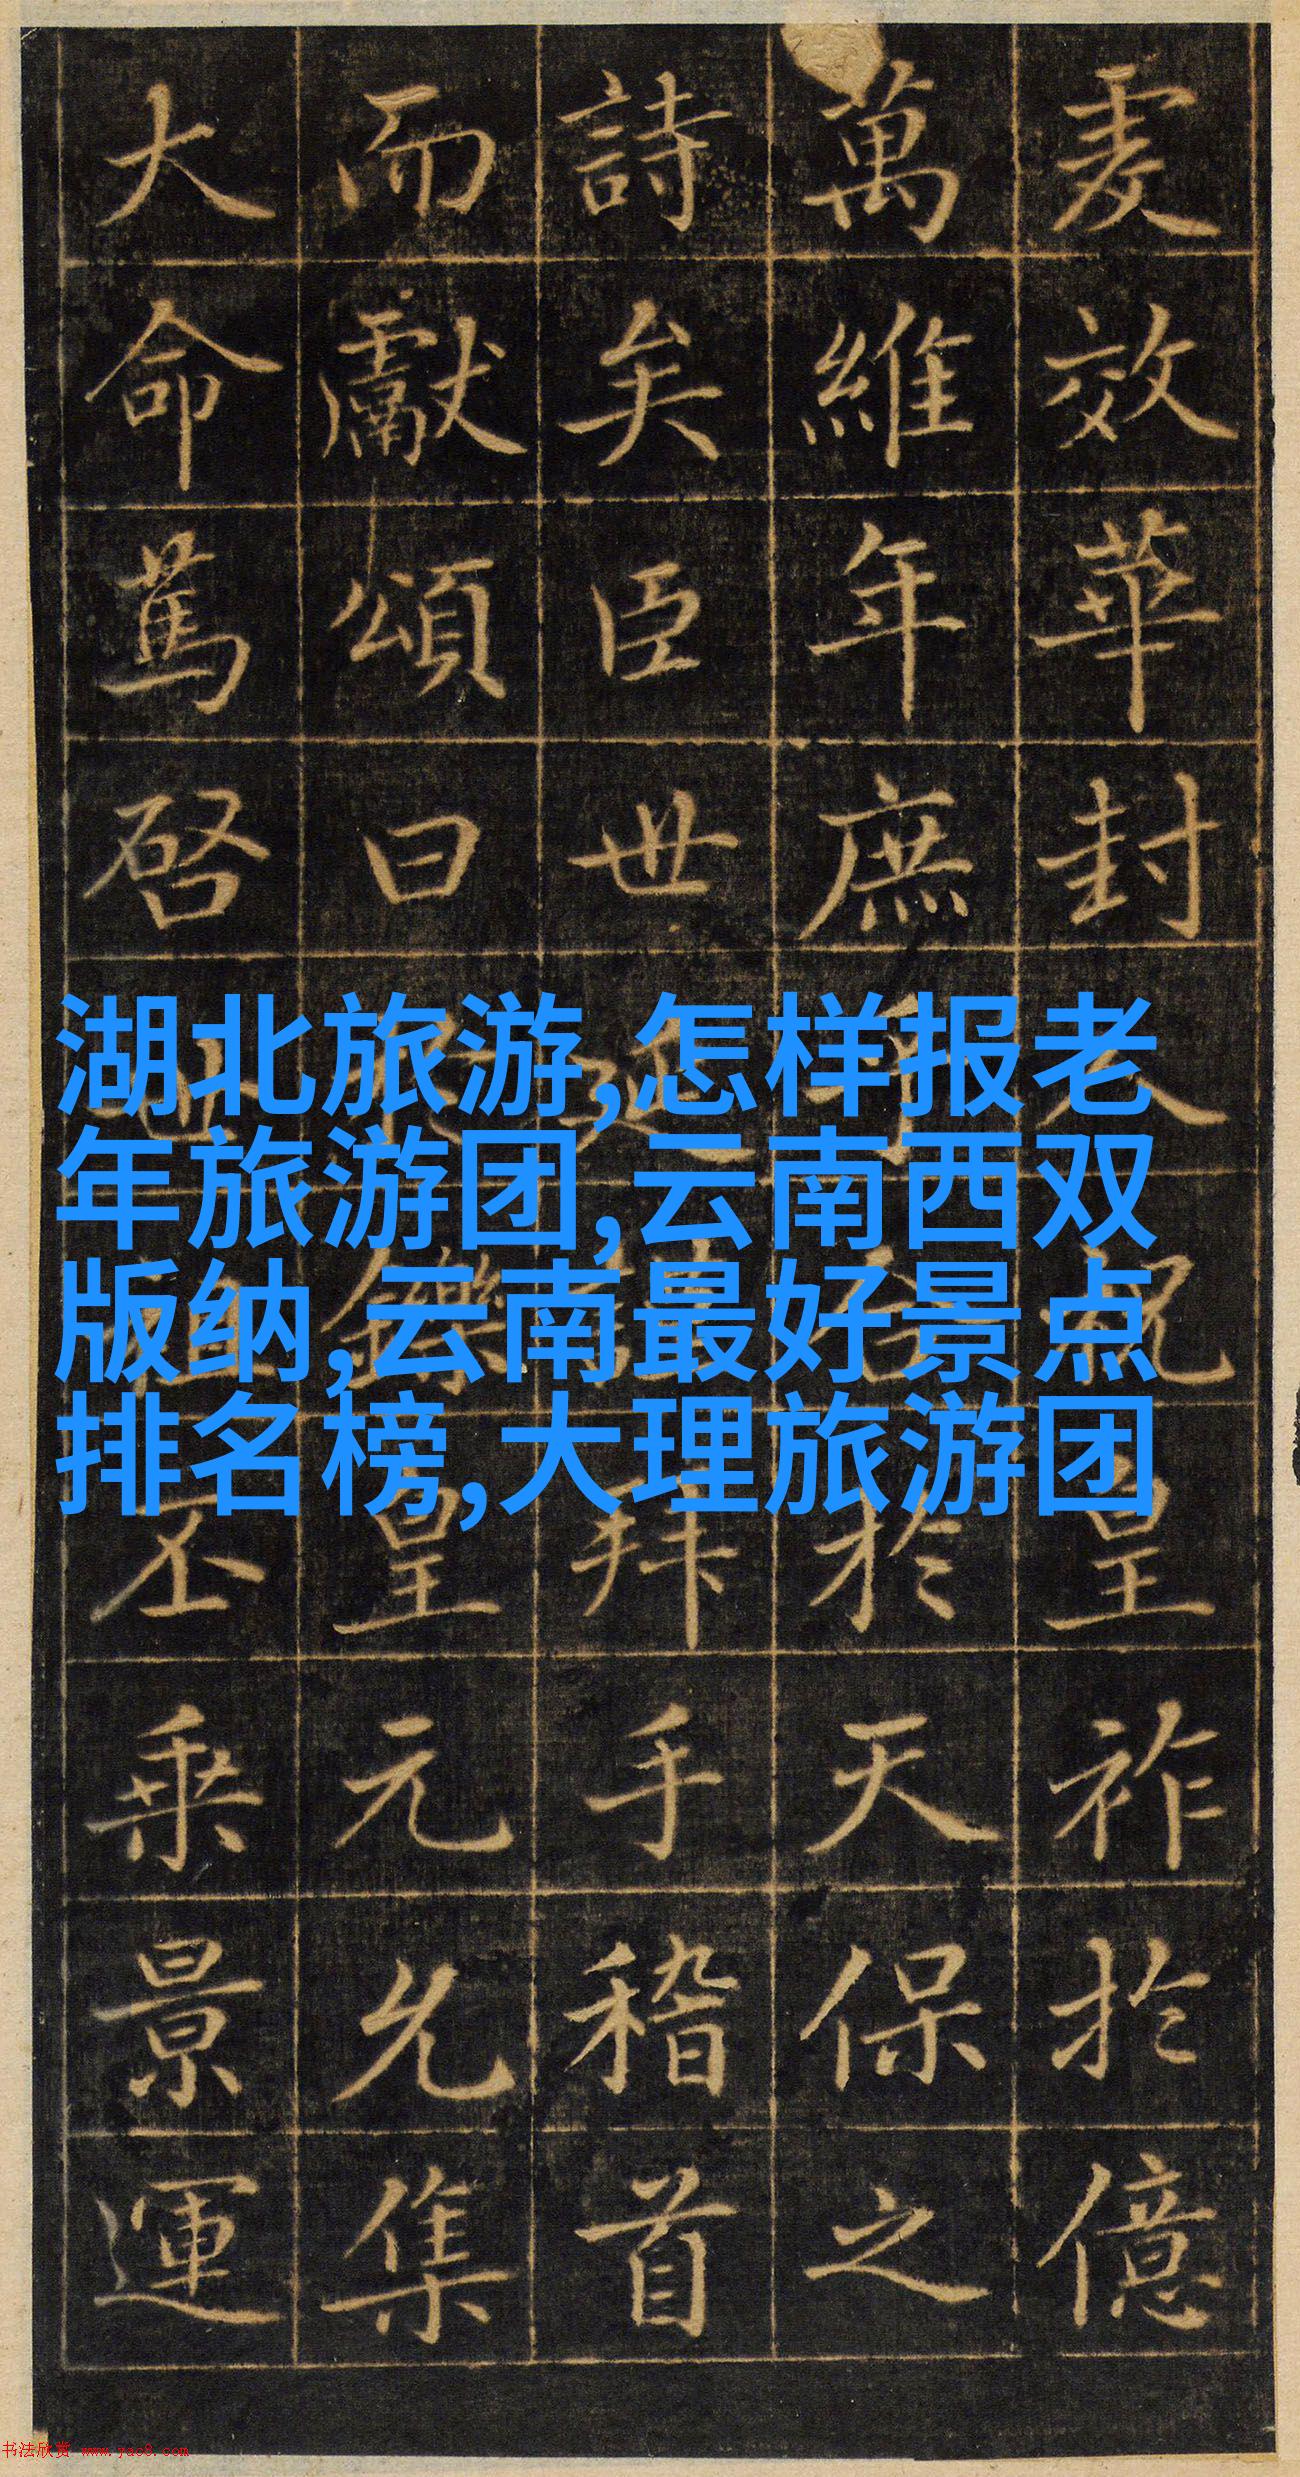 效華封人祝皇祚於億
萬維年庶乎合於天保之
詩矣臣世延謹拜手稽首
而獻頌曰鑠皇元允集
大命篤啓世祖丕乘景運
湖北旅游,怎样报老
年旅游团,云南西双
版纳,云南最好景点
排名榜,大理旅游团
书法欣赏 www.yac8.com